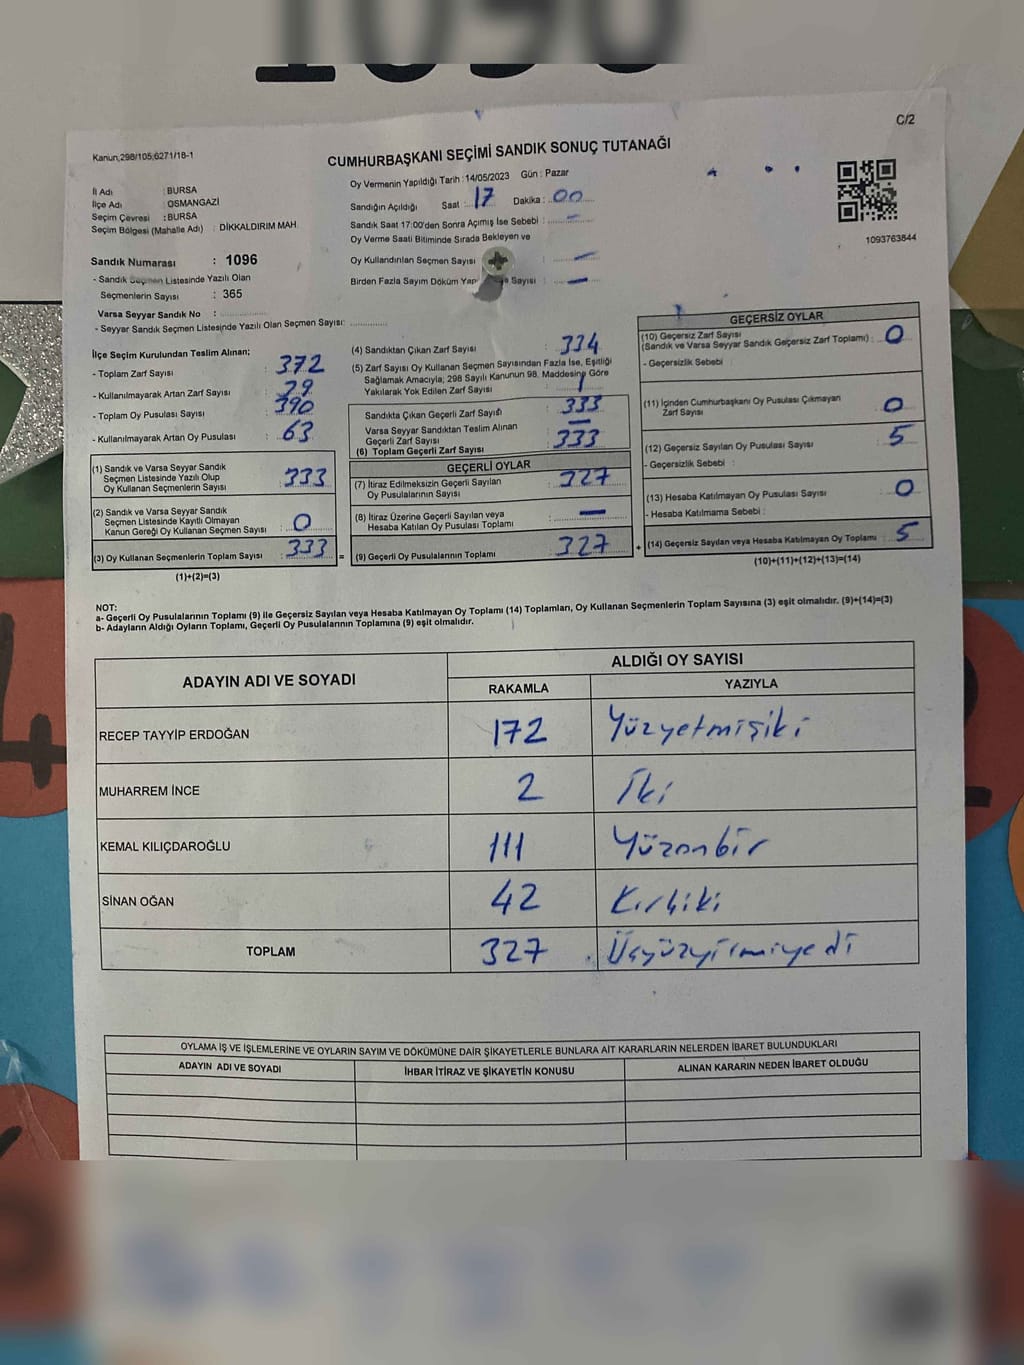 1096
C/2
Kanun;298/105;6271/18-1
CUMHURBAŞKANI SEÇİMİ SANDIK SONUÇ TUTANAĞI
İl Adı : BURSA
İlçe Adı : OSMANGAZİ
Seçim Çevresi : BURSA
Seçim Bölgesi (Mahalle Adı) : DİKKALDIRIM MAH
Oy Vermenin Yapıldığı Tarih : 14/05/2023 Gün : Pazar
Sandığın Açıldığı Saat : 17 Dakika : 00
Sandık Saat 17:00'den Sonra Açımış İse Sebebi : -
Oy Verme Saati Bitiminde Sırada Bekleyen ve
Oy Kullandırılan Seçmen Sayısı : -
Birden Fazla Sayım Döküm Sayısı : -
1093763844
Sandık Numarası : 1096
- Sandık Seçmen Listesinde Yazılı Olan
Seçmenlerin Sayısı : 365
Varsa Seyyar Sandık No :
- Seyyar Sandık Seçmen Listesinde Yazılı Olan Seçmen Sayısı:
İlçe Seçim Kurulundan Teslim Alınan;
- Toplam Zarf Sayısı : 372
- Kullanılmayarak Artan Zarf Sayısı : 29
- Toplam Oy Pusulası Sayısı : 390
- Kullanılmayarak Artan Oy Pusulası : 63
(1) Sandık ve Varsa Seyyar Sandık
Seçmen Listesinde Yazılı Olup
Oy Kullanan Seçmenlerin Sayısı : 333
(2) Sandık ve Varsa Seyyar Sandık
Seçmen Listesinde Kayıtlı Olmayan
Kanun Gereği Oy Kullanan Seçmen Sayısı : 0
(3) Oy Kullanan Seçmenlerin Toplam Sayısı : 333 =
(1)+(2)=(3)
(4) Sandıktan Çıkan Zarf Sayısı : 334
(5) Zarf Sayısı Oy Kullanan Seçmen Sayısından Fazla İse, Eşitliği
Sağlamak Amacıyla; 298 Sayılı Kanunun 98. Maddesine Göre
Yakılarak Yok Edilen Zarf Sayısı : 1
Sandıkta Çıkan Geçerli Zarf Sayısı : 333
Varsa Seyyar Sandıktan Teslim Alınan
Geçerli Zarf Sayısı : -
(6) Toplam Geçerli Zarf Sayısı 333
GEÇERLİ OYLAR
(7) İtiraz Edilmeksizin Geçerli Sayılan
Oy Pusulalarının Sayısı : 327
(8) İtiraz Üzerine Geçerli Sayılan veya
Hesaba Katılan Oy Pusulası Toplamı : -
(9) Geçerli Oy Pusulalarının Toplamı : 327 +
GEÇERSİZ OYLAR
(10) Geçersiz Zarf Sayısı
(Sandık ve Varsa Seyyar Sandık Geçersiz Zarf Toplamı) : 0
- Geçersizlik Sebebi :
(11) İçinden Cumhurbaşkanı Oy Pusulası Çıkmayan
Zarf Sayısı : 0
(12) Geçersiz Sayılan Oy Pusulası Sayısı : 5
- Geçersizlik Sebebi :
(13) Hesaba Katılmayan Oy Pusulası Sayısı : 0
- Hesaba Katılmama Sebebi :
(14) Geçersiz Sayılan veya Hesaba Katılmayan Oy Toplamı : 5
(10)+(11)+(12)+(13)=(14)
NOT:
a- Geçerli Oy Pusulalarının Toplamı (9) ile Geçersiz Sayılan veya Hesaba Katılmayan Oy Toplamı (14) Toplamları, Oy Kullanan Seçmenlerin Toplam Sayısına (3) eşit olmalıdır. (9)+(14)=(3)
b- Adayların Aldığı Oyların Toplamı, Geçerli Oy Pusulalarının Toplamına (9) eşit olmalıdır.
ADAYIN ADI VE SOYADI ALDIĞI OY SAYISI
RAKAMLA YAZIYLA
RECEP TAYYİP ERDOĞAN 172 Yüzyetmişiki
MUHARREM İNCE 2 İki
KEMAL KILIÇDAROĞLU 111 Yüzonbir
SİNAN OĞAN 42 Kırkiki
TOPLAM 327 Üçyüzyirmiyedi
OYLAMA İŞ VE İŞLEMLERİNE VE OYLARIN SAYIM VE DÖKÜMÜNE DAİR ŞİKAYETLERLE BUNLARA AİT KARARLARIN NELERDEN İBARET BULUNDUKLARI
ADAYIN ADI VE SOYADI İHBAR İTİRAZ VE ŞİKAYETİN KONUSU ALINAN KARARIN NEDEN İBARET OLDUĞU